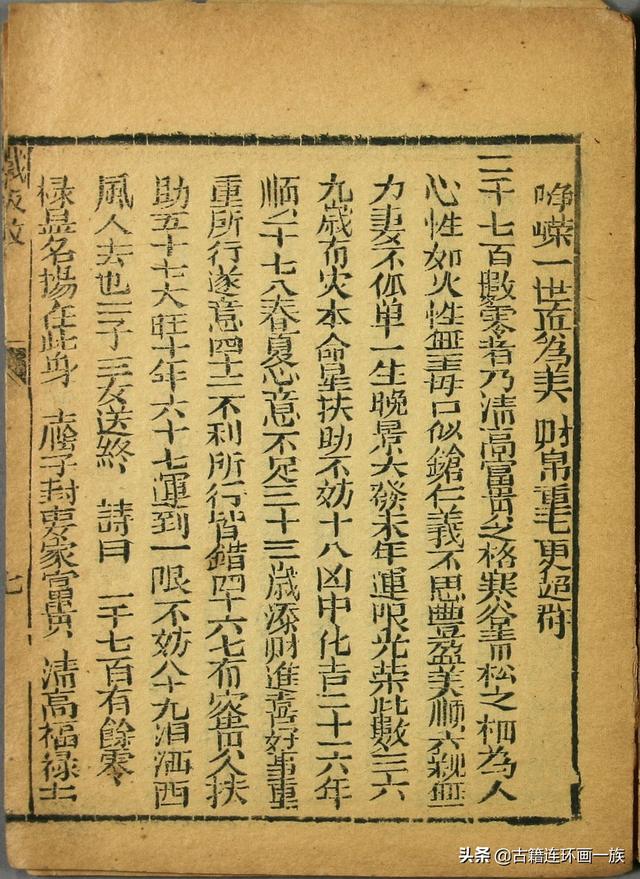 峥嵘一世並為美 财帛重重更超群
二千七百數零者乃清高富貴之格寒谷青松之相為人
心性如火性無毒口似鎗仁義不思豐盈美順六親無
力妻不孤单一生晚景大發末年運限光荣此數三六
九歲有灾本命星扶助不妨十八凶中化吉二十六年
順二十七八春夏心意不足三十三歲添财進喜好事重
重所行遂意四十二不利所行皆錯四十六七有灾貴人扶
助五十七大旺十年六十七運到一限不妨八十九泪洒西
風人去也三子三女送終 詩曰 一千七百有餘零
禄是名揚在此身 子封妻家富貴 清高福禄士
鐵板数 七
头条 @古籍连环画一族